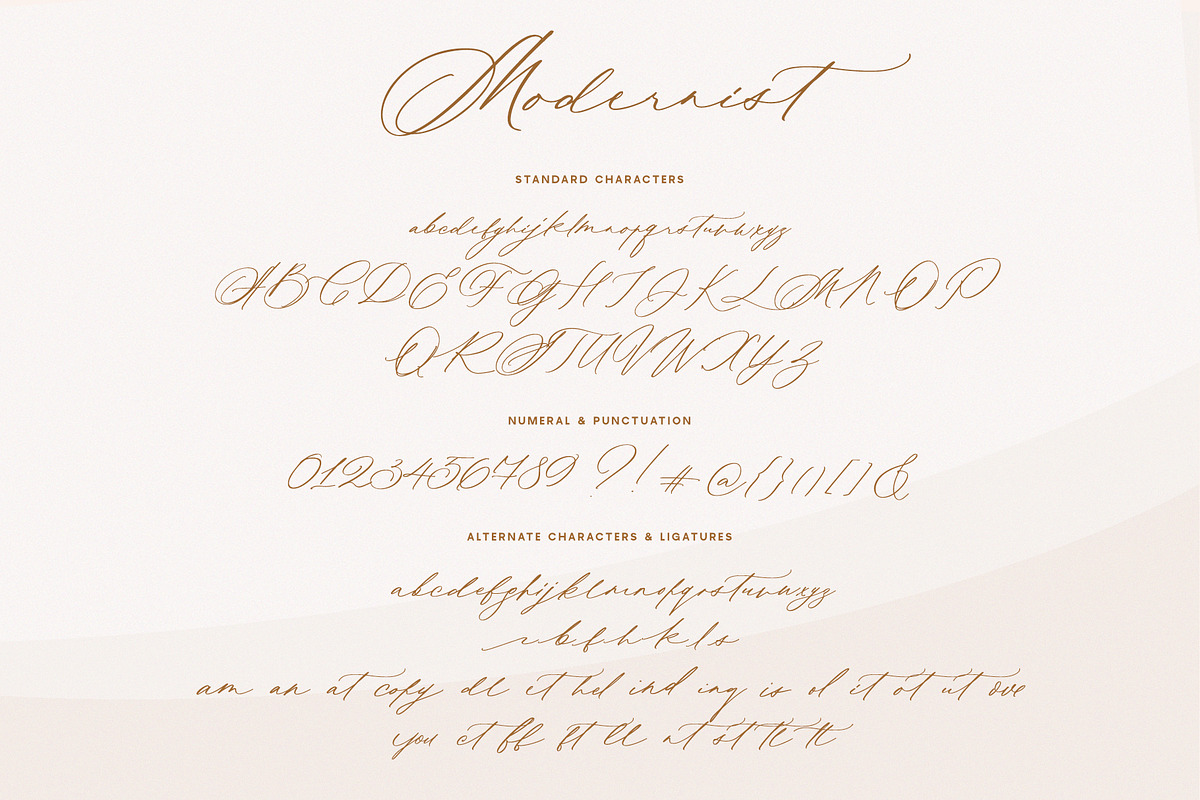 Modernist
STANDARD CHARACTERS
abcdefghijklmnopqrstuvwxyz
ABCDEFGHIJKLMNOP
QRSTUVWXYZ
NUMERAL & PUNCTUATION
0123456789 ?!#@{}()[]&
ALTERNATE CHARACTERS & LIGATURES
abcdefghijklmnopqrstuvwxyz
r b f h k l s
am an at copy dl et hel ind ing is ol it ot ut ove
you ct ff ft ll nt st tl tt